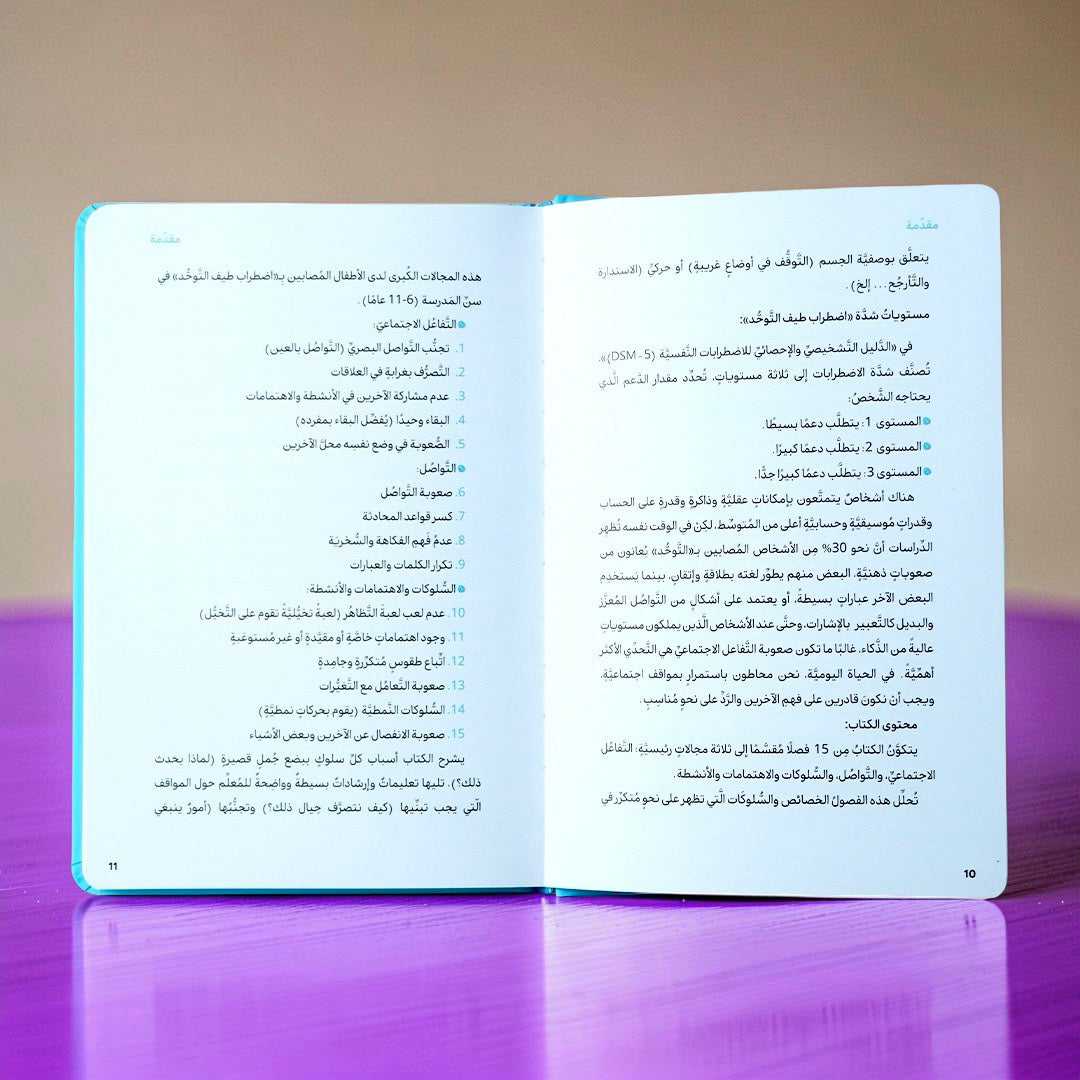 مقدّمة
يتعلَّق بوصفيَّة الجسم (التَّوقُّف في أوضاعٍ غريبةٍ) أو حركيّ (الاستدارة
والتَّأرجُح... إلخ).
مستوياتُ شدَّة «اضطراب طيف التَّوحُّد»:
في «الدَّليل التَّشخيصيّ والإحصائيّ للاضطرابات النَّفسيَّة (DSM-5)»،
تُصنَّف شدَّة الاضطرابات إلى ثلاثة مستوياتٍ، تُحدِّد مقدار الدَّعم الَّذي
يحتاجه الشَّخصُ:
المستوى 1: يتطلَّب دعمًا بسيطًا.
المستوى 2: يتطلَّب دعمًا كبيرًا.
المستوى 3: يتطلَّب دعمًا كبيرًا جدًّا.
هناك أشخاصٌ يتمتَّعون بإمكاناتٍ عقليَّةٍ وذاكرةٍ وقدرةٍ على الحساب
وقدراتٍ مُوسيقيَّةٍ وحسابيَّةٍ أعلى من المُتوسِّط، لكِنْ في الوقت نفسه تُظهِر
الدِّراسات أنَّ نحو 30% مِن الأشخاص المُصابين بـ«التَّوحُّد» يُعانون من
صعوباتٍ ذهنيَّةٍ. البعض منهم يطوِّر لغته بطلاقةٍ وإتقانٍ، بينما يَستخدِم
البعض الآخر عباراتٍ بسيطةً، أو يعتمد على أشكالٍ من التَّواصُل المُعزَّز
والبديل كالتَّعبير بالإشارات، وحتَّى عند الأشخاص الَّذين يملكون مستوياتٍ
عاليةً من الذَّكاء، غالبًا ما تكون صعوبة التَّفاعل الاجتماعيّ هي التَّحدِّي الأكثر
أهمِّيَّةً. في الحياة اليوميَّة، نحن محاطون باستمرارٍ بمواقف اجتماعيَّةٍ،
ويجب أنْ نكونَ قادرين على فهمِ الآخرين والرَّدِّ على نحوٍ مُناسِبٍ.
محتوى الكتاب:
يتكوَّنُ الكتابُ مِن 15 فصلًا مُقسَّمًا إلى ثلاثة مجالاتٍ رئيسيَّةٍ: التَّفاعُل
الاجتماعيّ، والتَّواصُل، والسُّلوكات والاهتمامات والأنشطة.
تُحلِّل هذه الفصولُ الخصائص والسُّلوكَات الَّتي تظهر على نحوٍ مُتكرِّرٍ في
10
مقدّمة
هذه المجالات الكُبرى لدى الأطفال المُصابين بـ«اضطراب طيف التَّوحُّد» في
سنِّ المَدرسة (6-11 عامًا).
التَّفاعُل الاجتماعيّ:
1. تجنُّب التَّواصل البصريّ (التَّواصُل بالعين)
2. التَّصرُّف بغرابةٍ في العلاقات
3. عدم مشاركة الآخرين في الأنشطة والاهتمامات
4. البقاء وحيدًا (يُفضِّل البقاء بمفرده)
5. الصُّعوبة في وضع نفسِه محلّ الآخرين
التَّواصُل:
6. صعوبة التَّواصُل
7. كسر قواعد المحادثة
8. عدمُ فَهم الفكاهة والسُّخريَة
9. تكرار الكلمات والعبارات
السُّلوكات والاهتمامات والأنشطة:
10. عدم لعب لعبةَ التَّظاهُر (لعبةً تخيُّليَّةً تقوم على التَّخيُّل)
11. وجود اهتماماتٍ خاصَّةٍ أو مقيَّدةٍ أو غير مُستوعَبةٍ
12. اتِّباع طقوسٍ مُتكرِّرةٍ وجامِدةٍ
13. صعوبة التَّعامُل مع التَّغيُّرات
14. السُّلوكات النَّمطيَّة (يقوم بحركاتٍ نمطيَّةٍ)
15. صعوبة الانفصال عن الآخرين وبعض الأشياء
يشرح الكتاب أسباب كلِّ سلوكٍ ببضع جُملٍ قصيرةٍ (لماذا يحدث
ذلك؟). تليها تعليماتٌ وإرشاداتٌ بسيطةٌ وواضِحةٌ للمُعلِّم حول المواقف
الَّتي يجب تبنِّيها (كيف نتصرَّف حيال ذلك؟) وتجنُّبُها (أمورٌ ينبغي
11